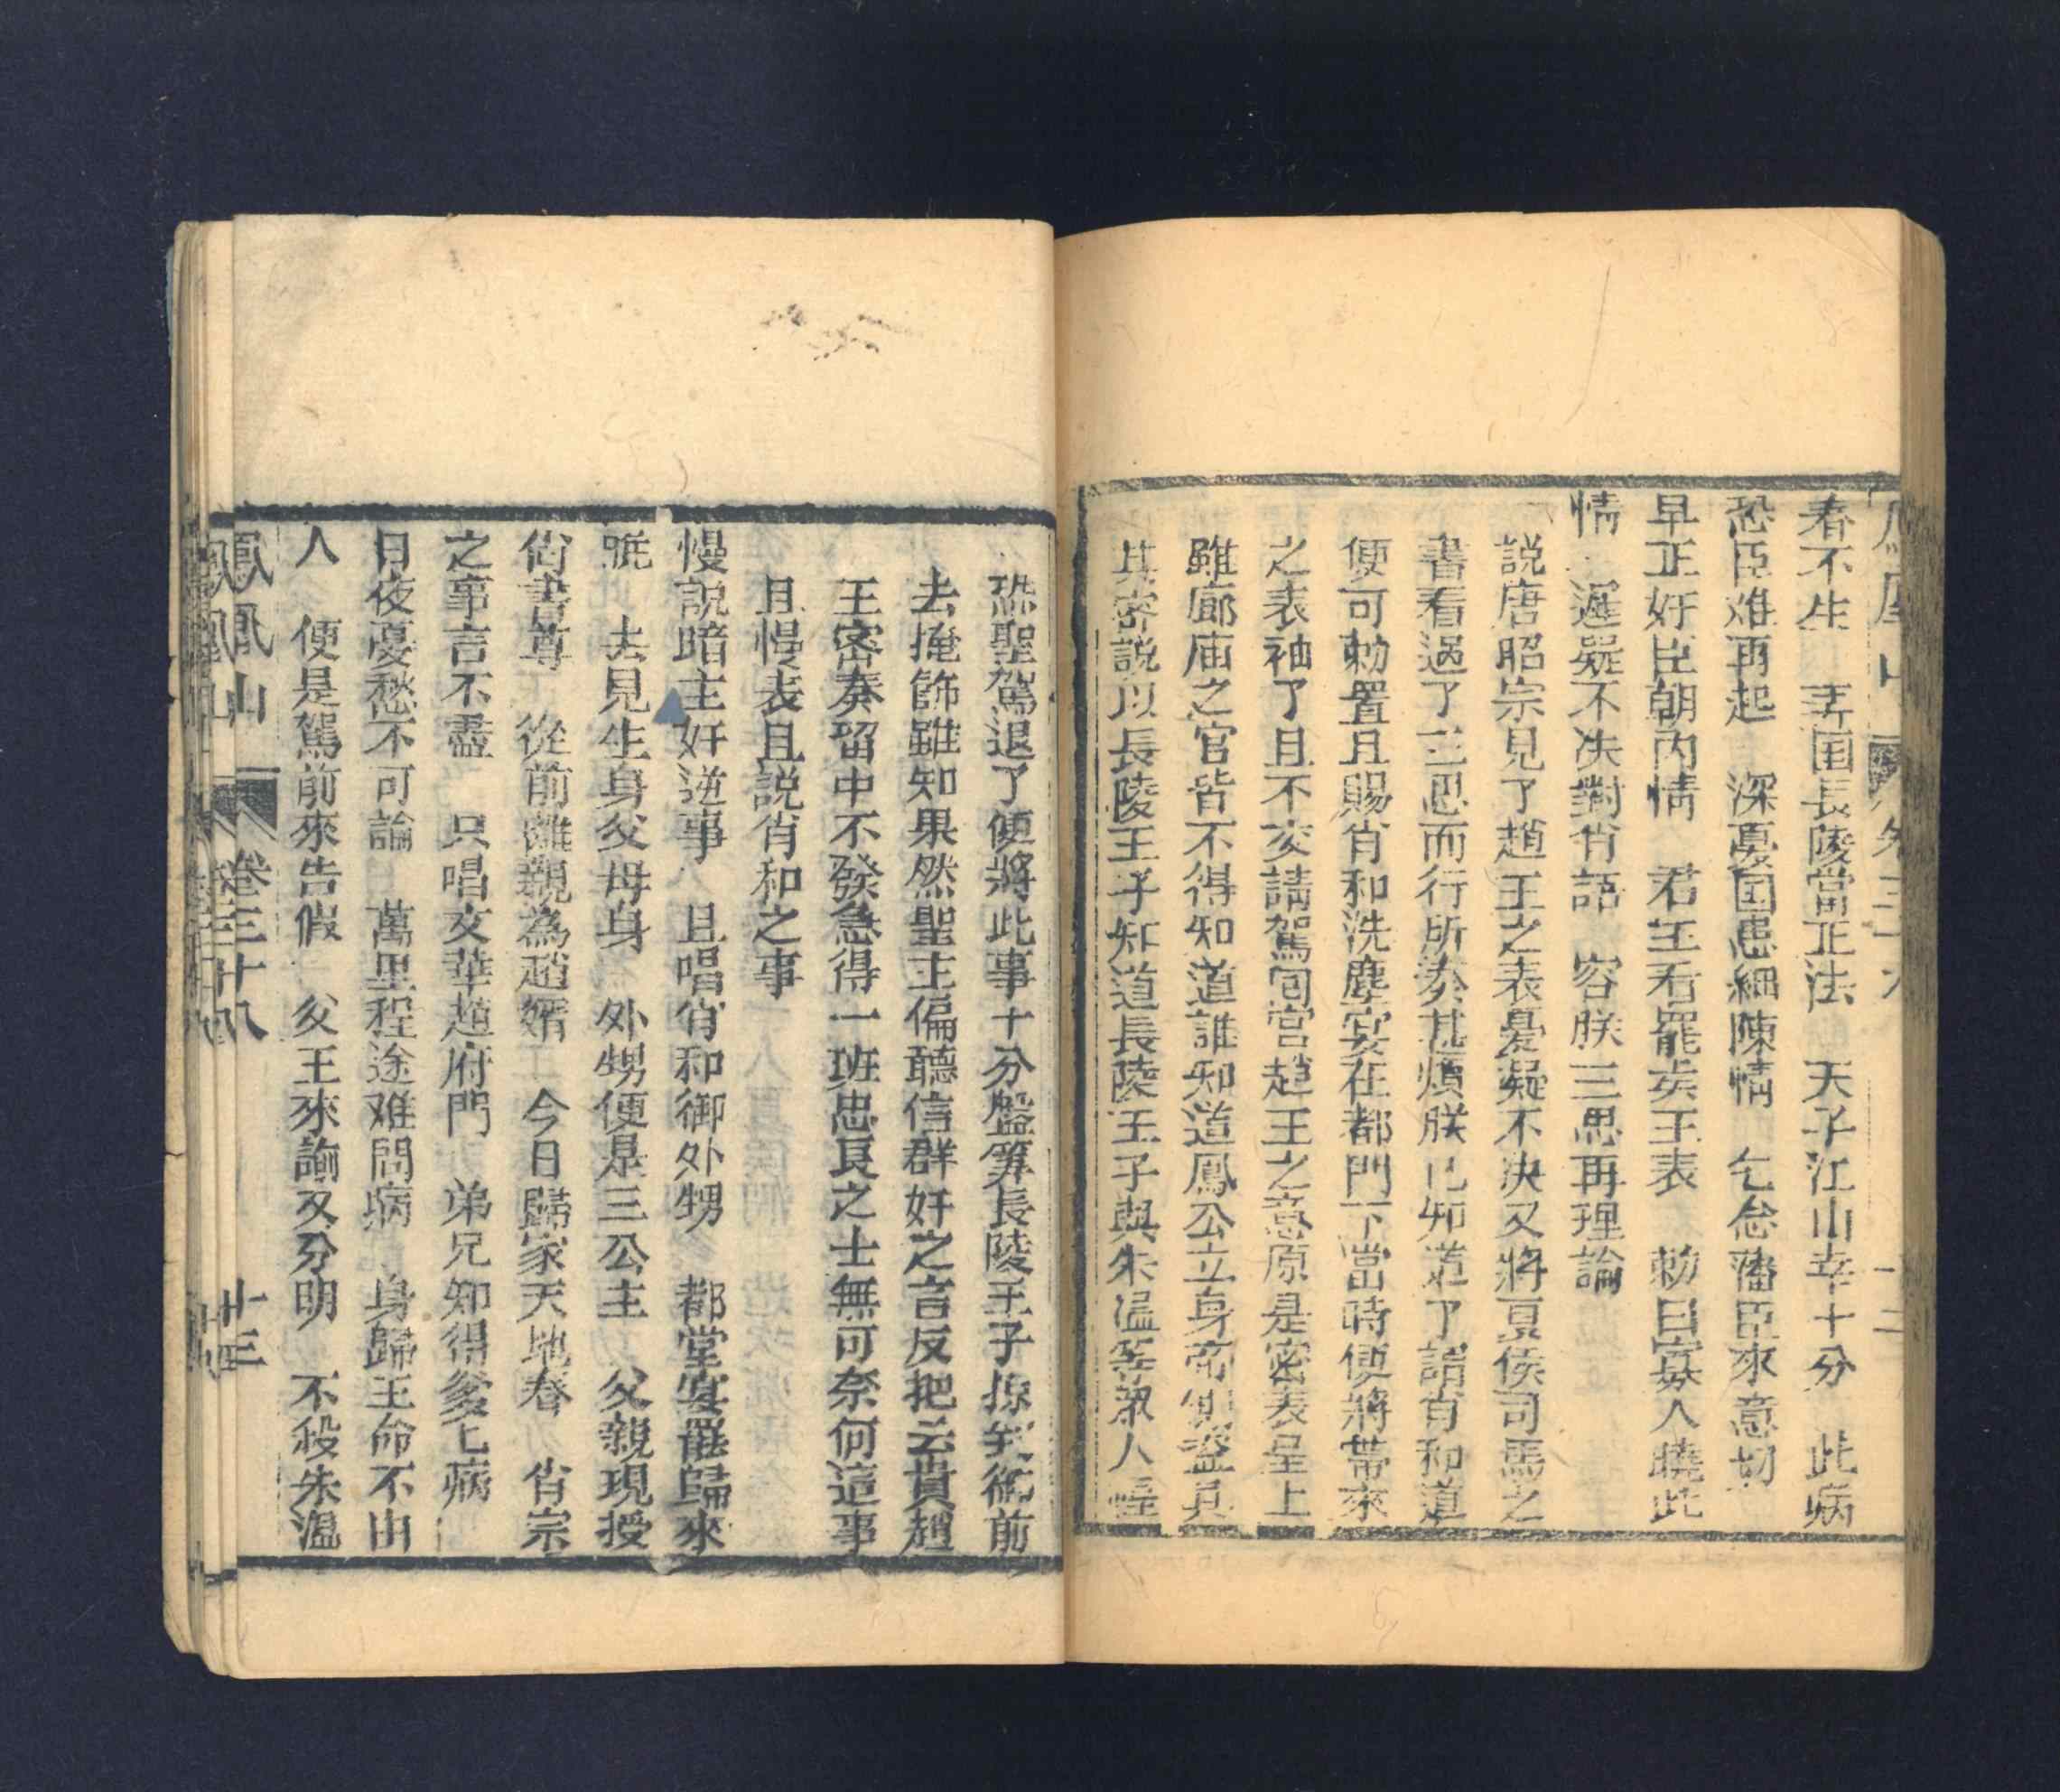 春不生　弄国長陵當正法　天子江山幸十分　此病
恐臣难再起　深憂国患細陳情　乞念藩臣來意切
早正奸臣朝内情　君王看罷矣王表　勅曰寡人曉此
情　遲疑不决對肖語　容朕三思再理論
説唐昭宗見了趙王之表憂疑不决又將夏侯司馬之
書看過了三思而行所奏甚煩朕已知道了諸肖和道
便可勅置且賜肖和洗塵宴在都門下當時便將帶來
之表袖了且不交請駕回宫趙王之意原是密表呈上
雖廊庙之官皆不得知道誰知道鳳公立身帝側盗
其密説以長陵王子知道長陵王子與朱温等衆人
恐聖駕退了便將此事十分盤算長陵王子掠 御前
去掩飾雖知果然聖主偏聽信群奸之言反把云貴趙
王密奏留中不發急得一班忠良之士無可奈何這事
且慢表且説肖和之事
慢説暗主奸逆事　且唱肖和御外甥　都堂宴罷歸來
晄　去見生身父母身　外甥便是三公主　父親現授
尚書尊　從前離親為趙婿　今日歸家天地春　肖宗
之事言不盡　只唱文華趙府門　弟兄知得爹七病
日夜憂愁不可論　萬里程途难問病　身歸王命不由
人　便是駕前來告假　父王來諭又分明　不殺朱温
鳳凰山　卷三十八　十三